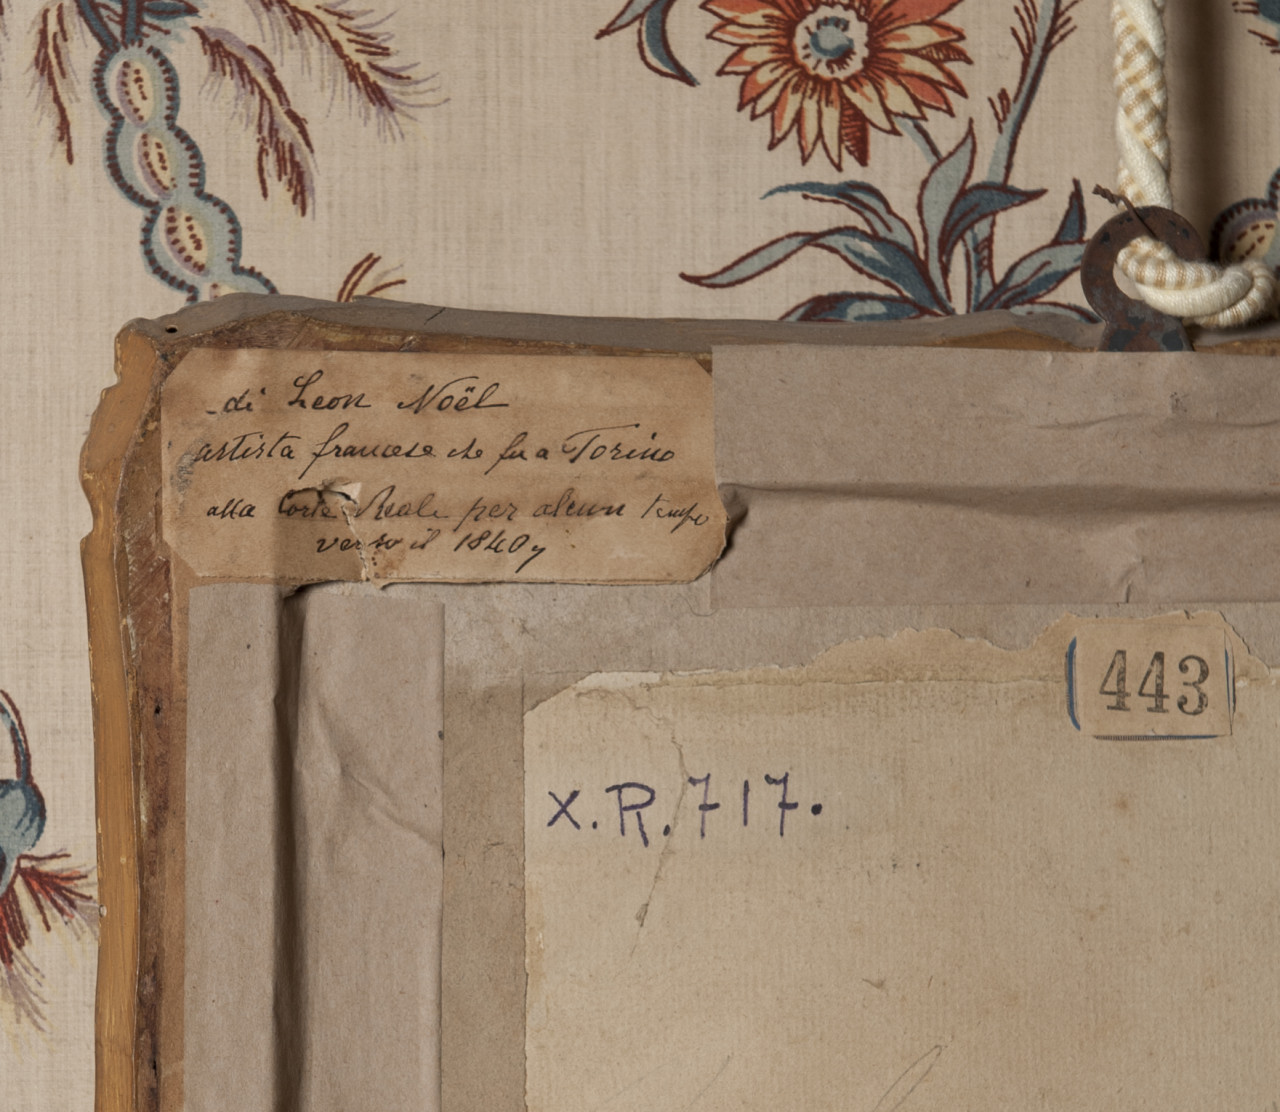 di Leon Noël
artista francese che fu a Torino
alla Corte Reale per alcun tempo
verso il 1840,
443
X.R.717.